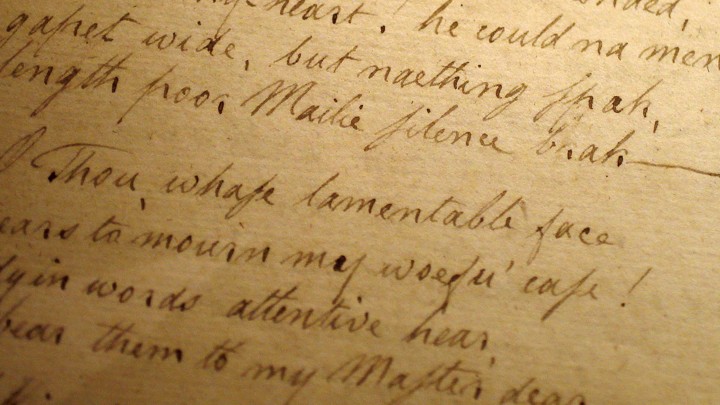 my heart! he could na men
gapet wide, but naething ſpak,
length poor Mailie ſilence brak—
O Thou, whaſe lamentable face
ears to mourn my woefu' caſe!
dyin words attentive hear,
bear them to my Maſter dear